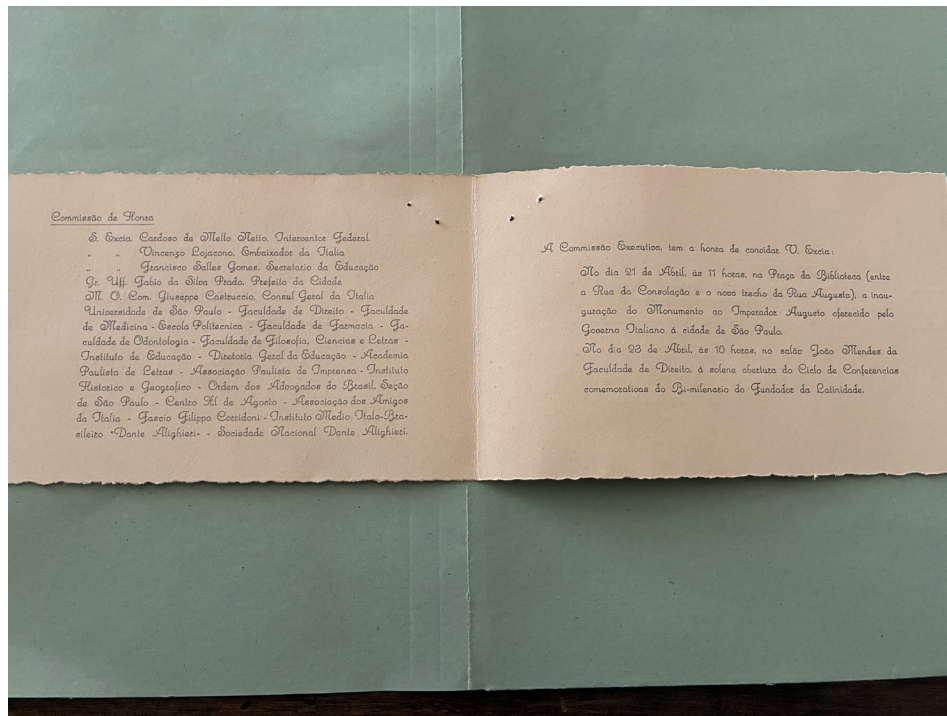 Commissão de Honra
S. Excia. Cardoso de Mello Netto, Interventor Federal.
„ „ Vincenzo Lojacono, Embaixador da Italia
„ „ Francisco Salles Gomes, Secretario da Educação
Gr. Uff. Fabio da Silva Prado, Prefeito da Cidade
M. O. Com. Giuseppe Castruccio, Consul Geral da Italia
Universidade de São Paulo - Faculdade de Direito - Faculdade
de Medicina - Escola Polytecnica - Faculdade de Farmacia - Fa-
culdade de Odontologia - Faculdade de Filosofia, Ciencias e Letras -
Instituto de Educação - Diretoria Geral da Educação - Academia
Paulista de Letras - Associação Paulista de Imprensa - Instituto
Historico e Geografico - Ordem dos Advogados do Brasil, Seção
de São Paulo - Centro XI de Agosto - Associação dos Amigos
da Italia - Fascio Filippo Corridoni - Instituto Medio Italo-Bra-
sileiro "Dante Alighieri" - Sociedade Nacional Dante Alighieri.
A Commissão Executiva, tem a honra de convidar V. Excia:
No dia 21 de Abril, ás 11 horas, na Praça da Biblioteca (entre
a Rua da Consolação e o novo trecho da Rua Augusta), a inau-
guração do Monumento ao Imperador Augusto oferecido pelo
Governo Italiano á cidade de São Paulo.
No dia 23 de Abril, ás 10 horas, no salão João Mendes da
Faculdade de Direito, á solene abertura do Ciclo de Conferencias
comemorativas do Bi-milenario do Fundador da Latinidade.